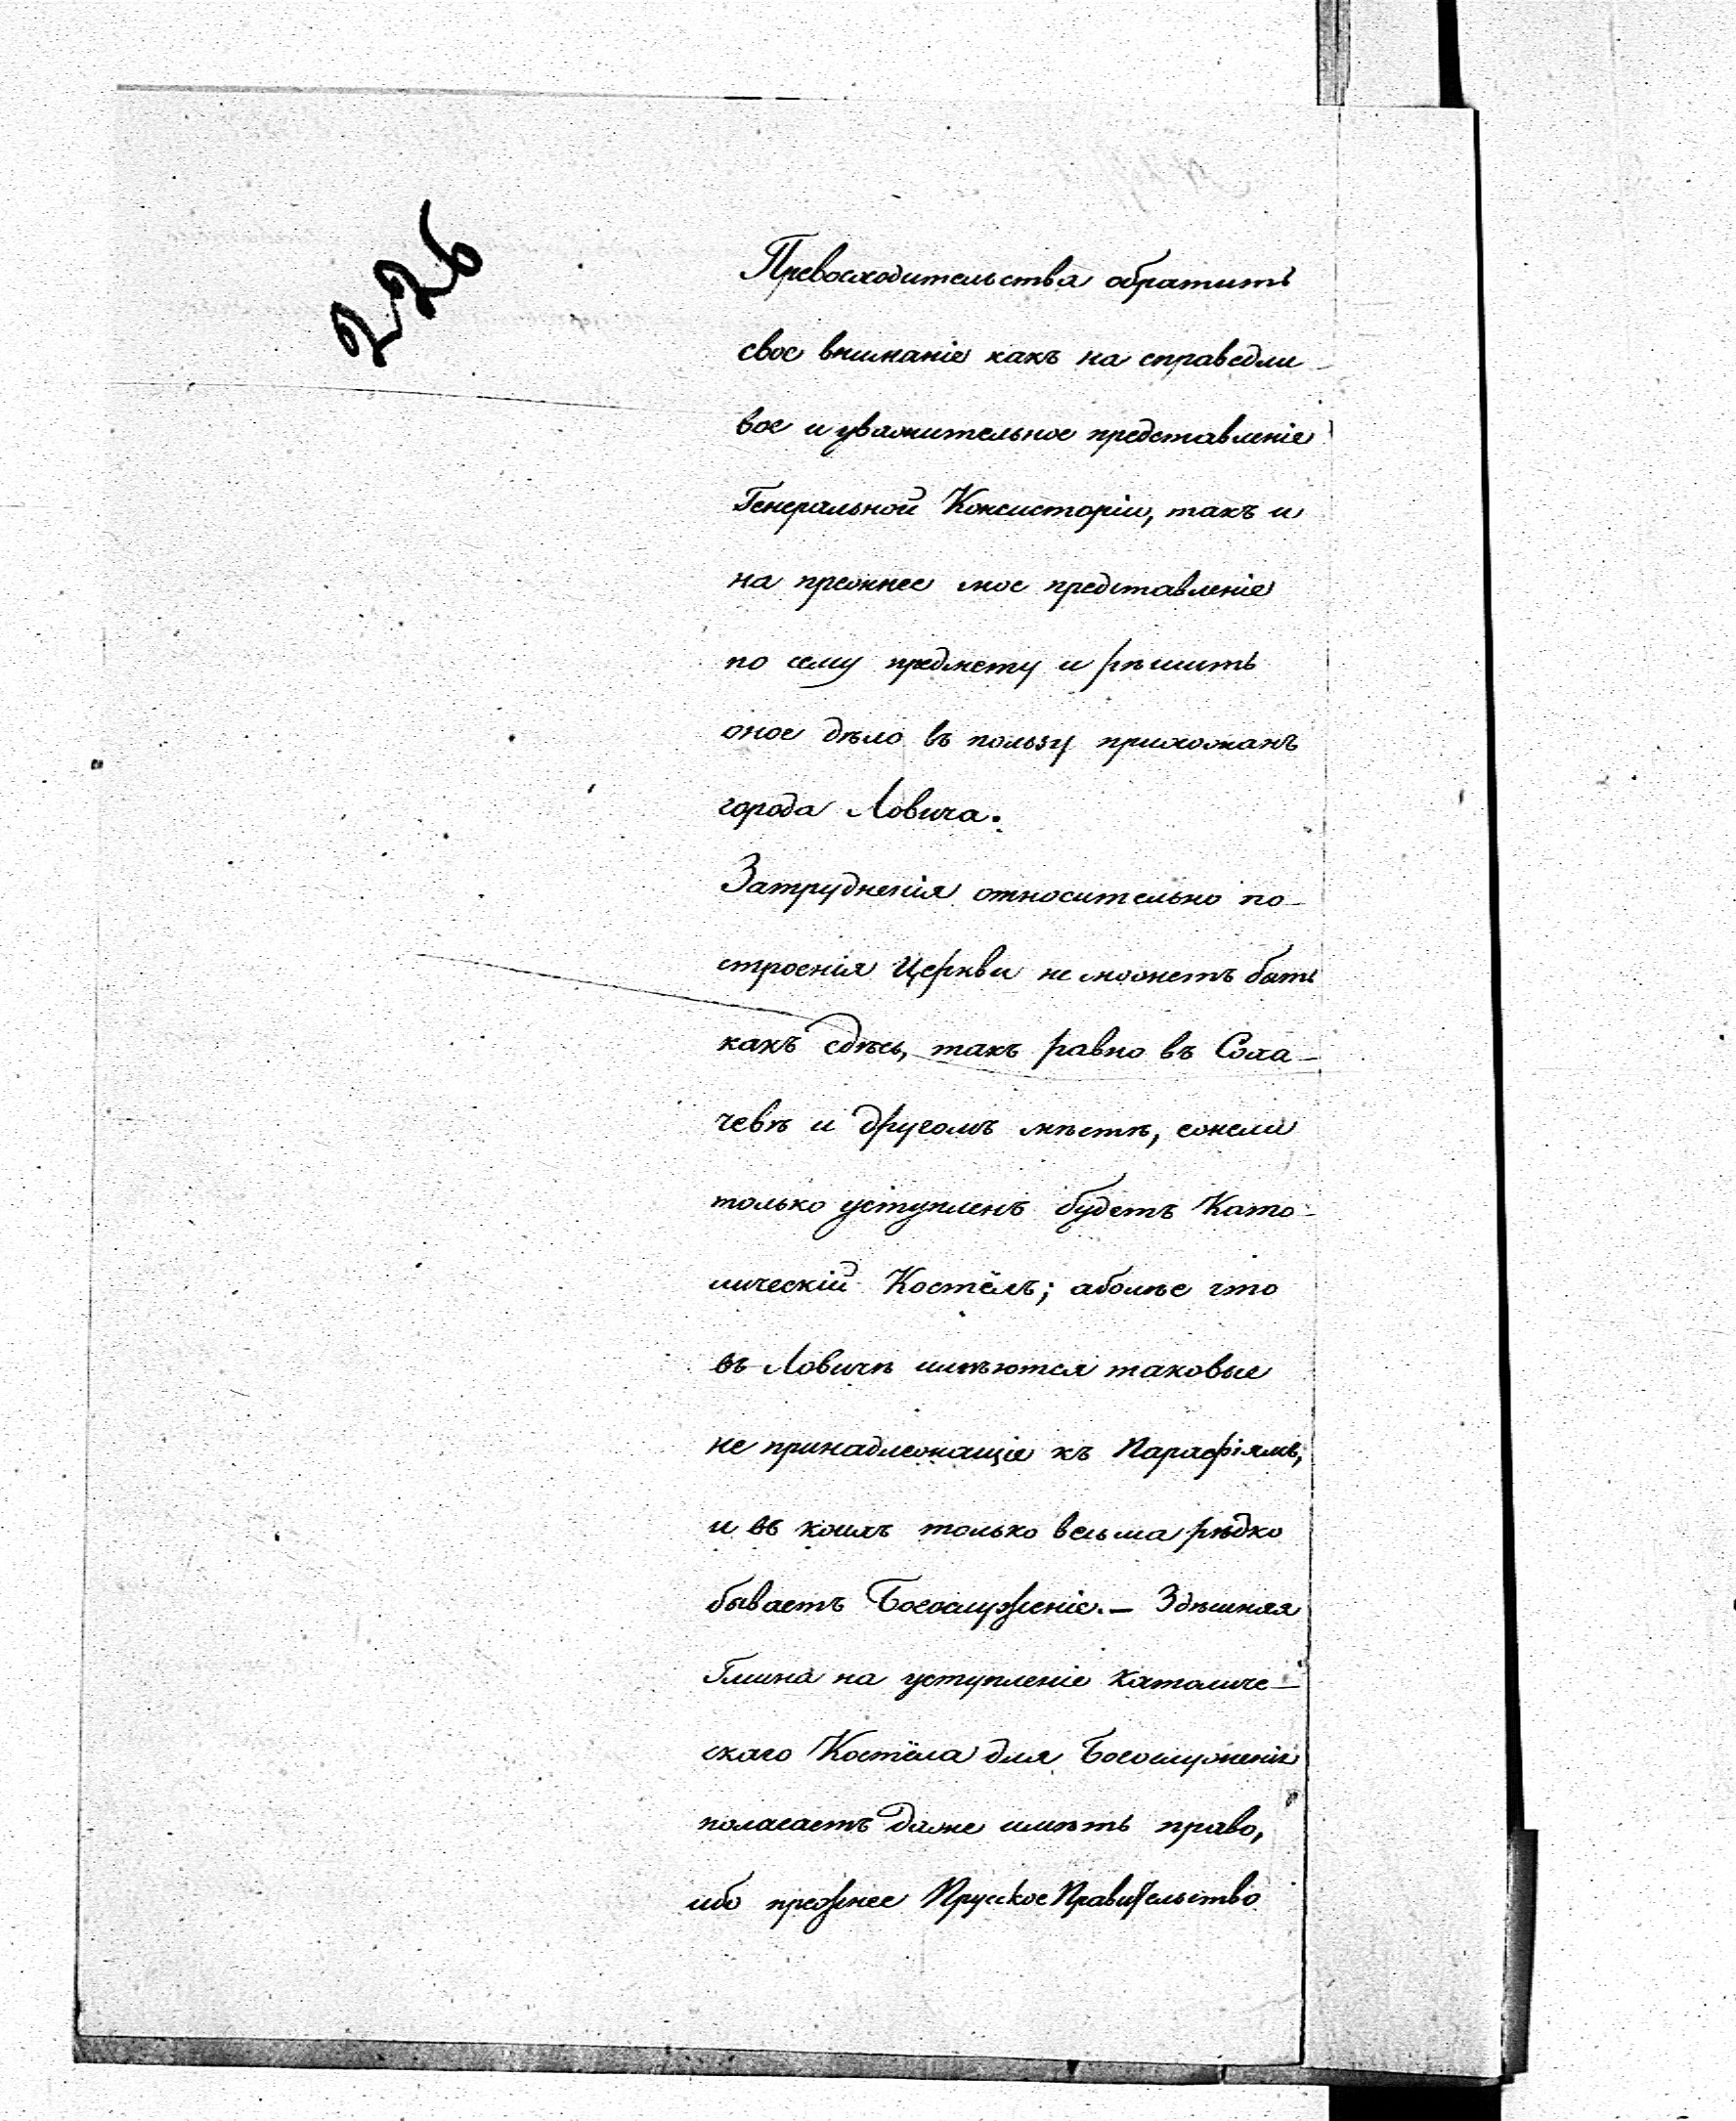 226
Превосходительства обратить
свое вниманіе какъ на справедли-
вое и уважительное представленіе
Генеральной Консисторіи, такъ и
на прежнее мое представленіе
по сему предмету и рѣшить
оное дѣло въ пользу прихожанъ
города Ловича.
Затрудненія относительно по-
строенія Церкви не можетъ быть
какъ сдѣсь, такъ равно въ Соха-
чевѣ и другомъ мѣстѣ, ежели
только уступленъ будетъ Като-
лическій Костёлъ; аболѣе что
въ Ловичѣ имѣются таковые
не принадлежащіе къ Парафіямъ,
и въ коихъ только весьма рѣдко
бываетъ Богослуженіе. — Здѣшняя
Гмина на уступленіе Католиче-
скаго Костёла для Богослуженія
полагаетъ даже имѣть право,
ибо прежнее Пруское Правительство